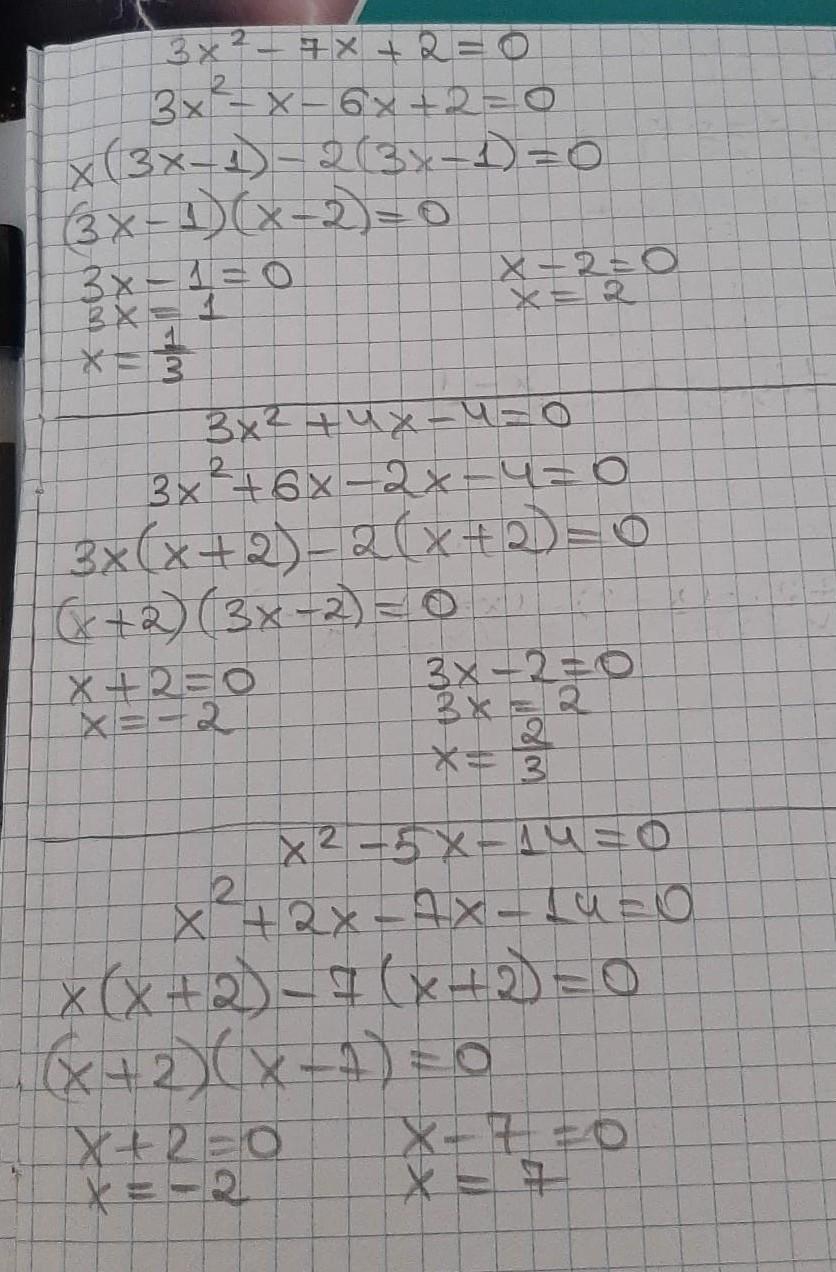 3x² - 7x + 2 = 0
3x² - x - 6x + 2 = 0
x(3x-1) - 2(3x-1) = 0
(3x-1)(x-2) = 0
3x - 1 = 0
3x = 1
x = 1/3
x - 2 = 0
x = 2
3x² + 4x - 4 = 0
3x² + 6x - 2x - 4 = 0
3x(x+2) - 2(x+2) = 0
(x+2)(3x-2) = 0
x + 2 = 0
x = -2
3x - 2 = 0
3x = 2
x = 2/3
x² - 5x - 14 = 0
x² + 2x - 7x - 14 = 0
x(x+2) - 7(x+2) = 0
(x+2)(x-7) = 0
x + 2 = 0
x = -2
x - 7 = 0
x = 7